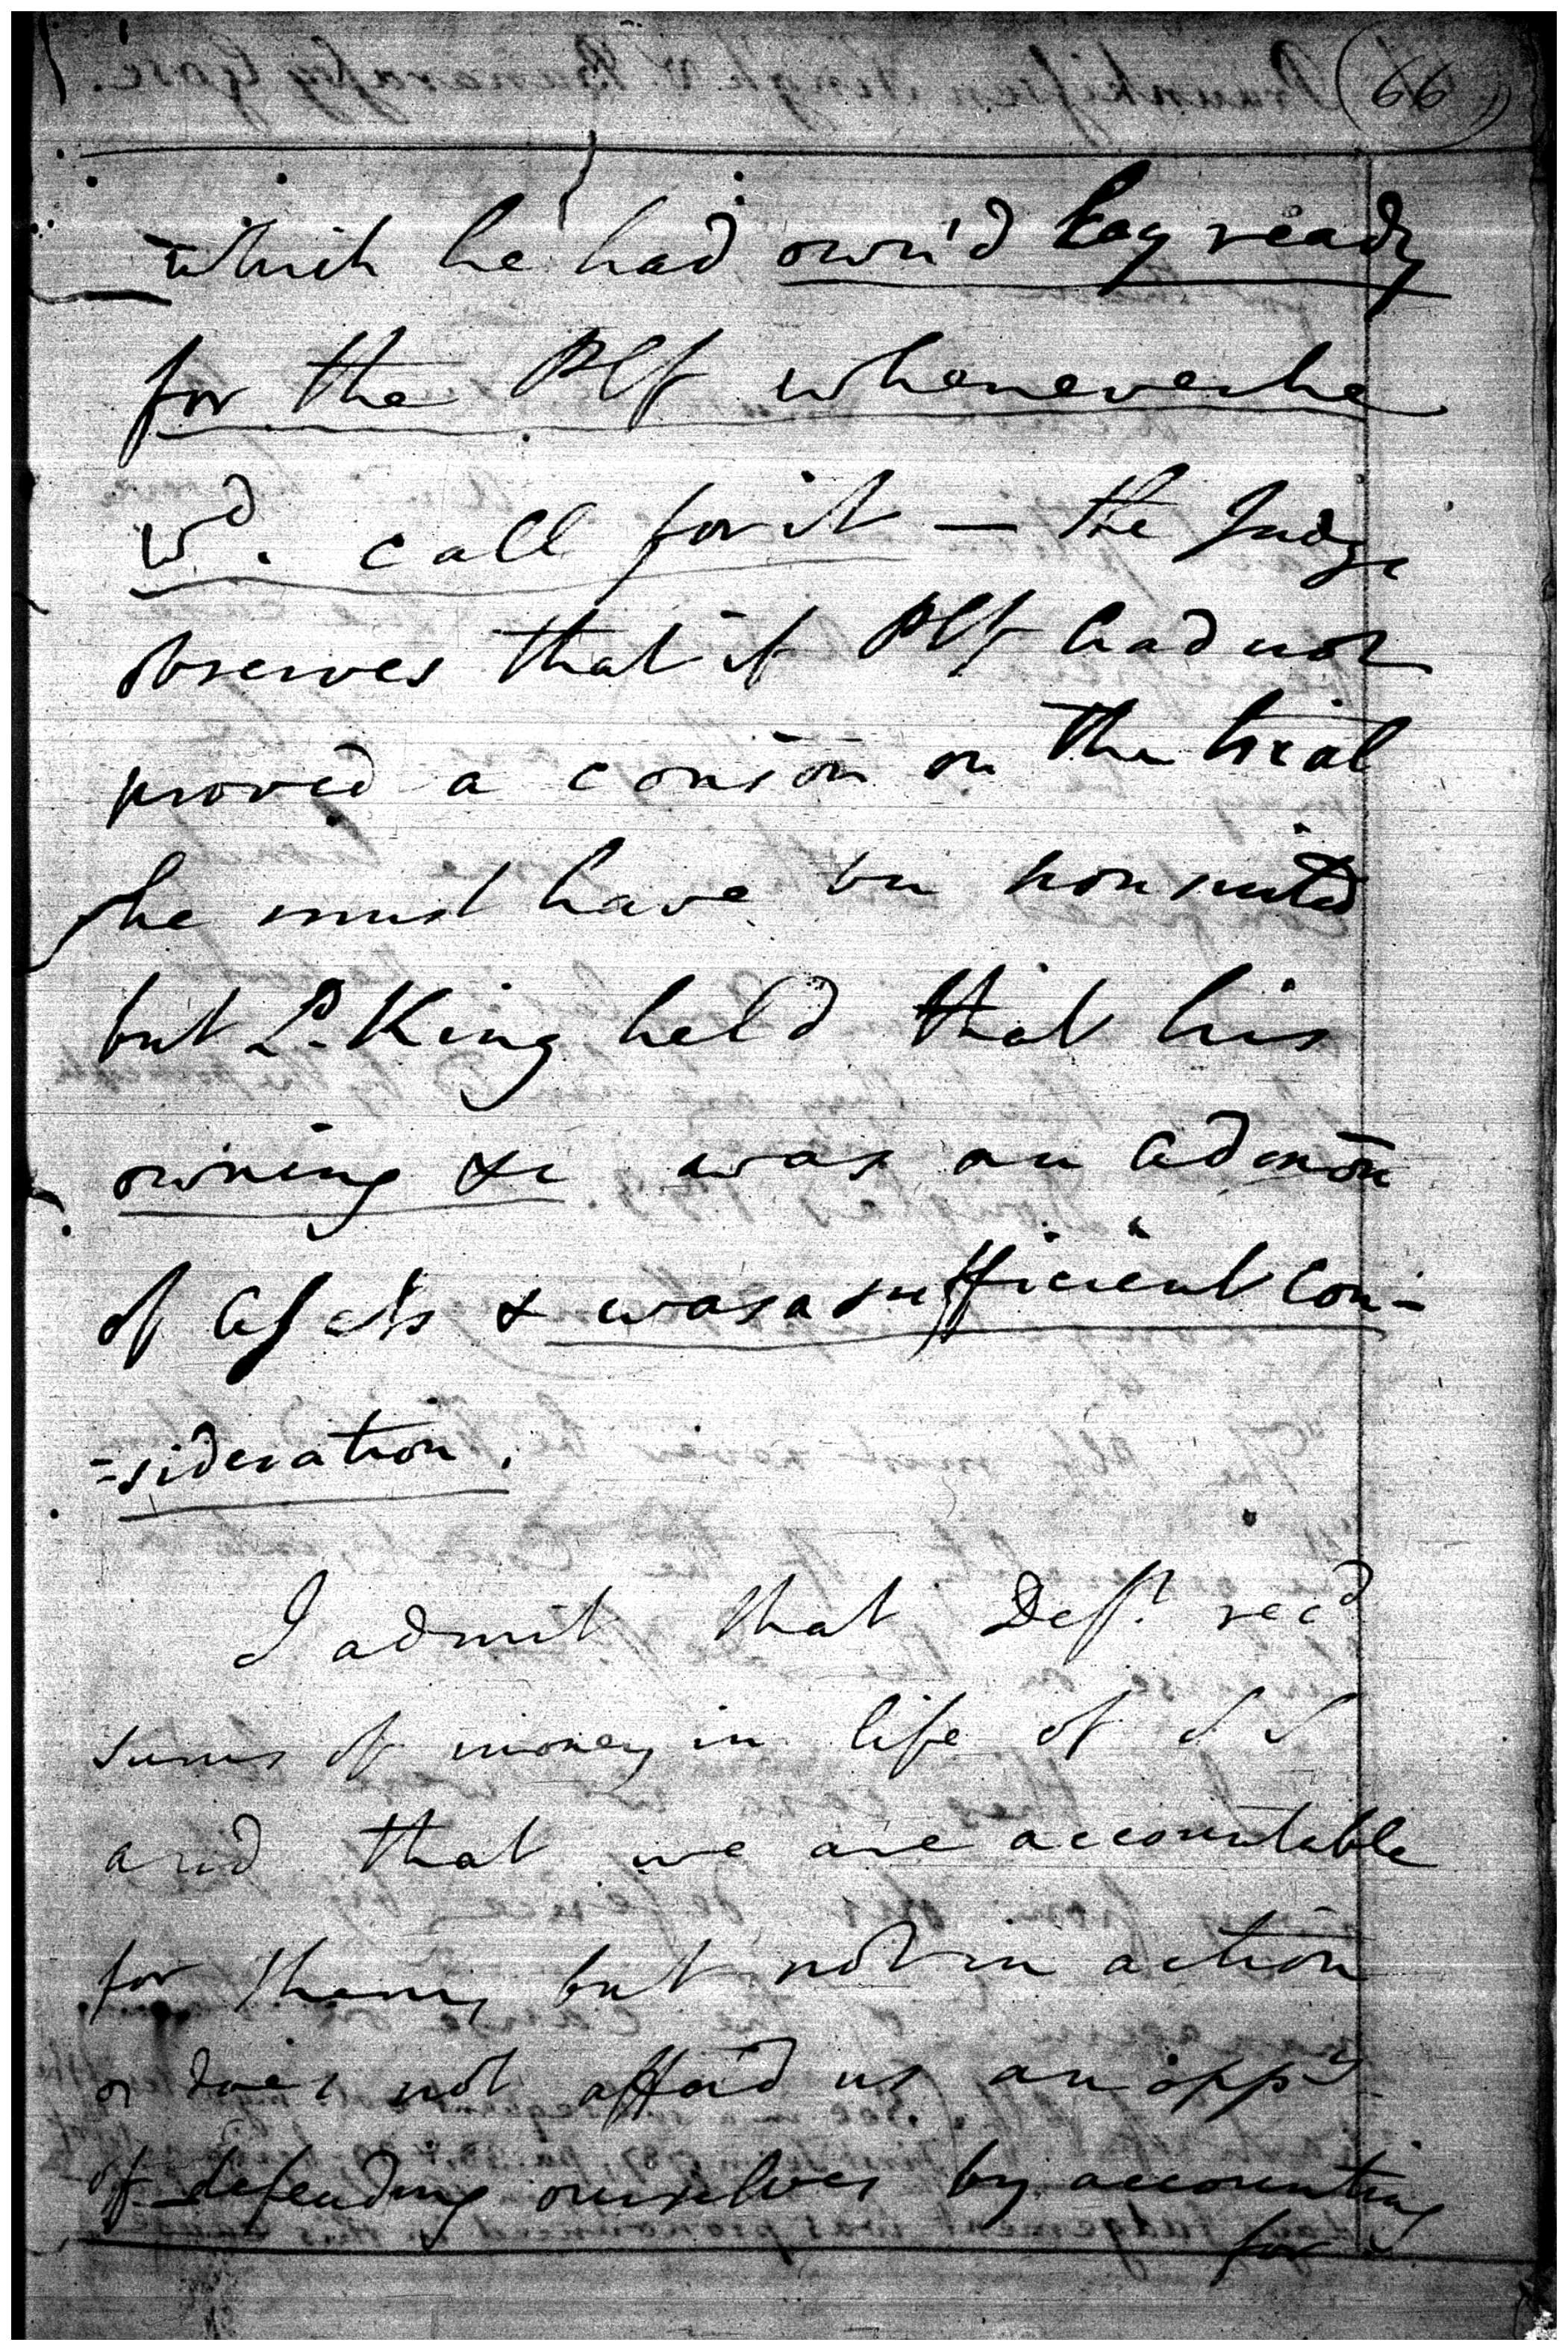 66
which he had own'd lay ready
for the Plf whenever he
wd. call for it — the Judge
observes that if Plf had not
proved a conson on the trial
he must have bn nonsuited
but Ld. King held that his
owning &c was an admon
of assets & was a sufficient con-
=sideration.
I admit that Deft. recd
sums of money in life of
and that we are accountable
for them, but not in action
does not afford us an oppy
of defending ourselves by accounting
for